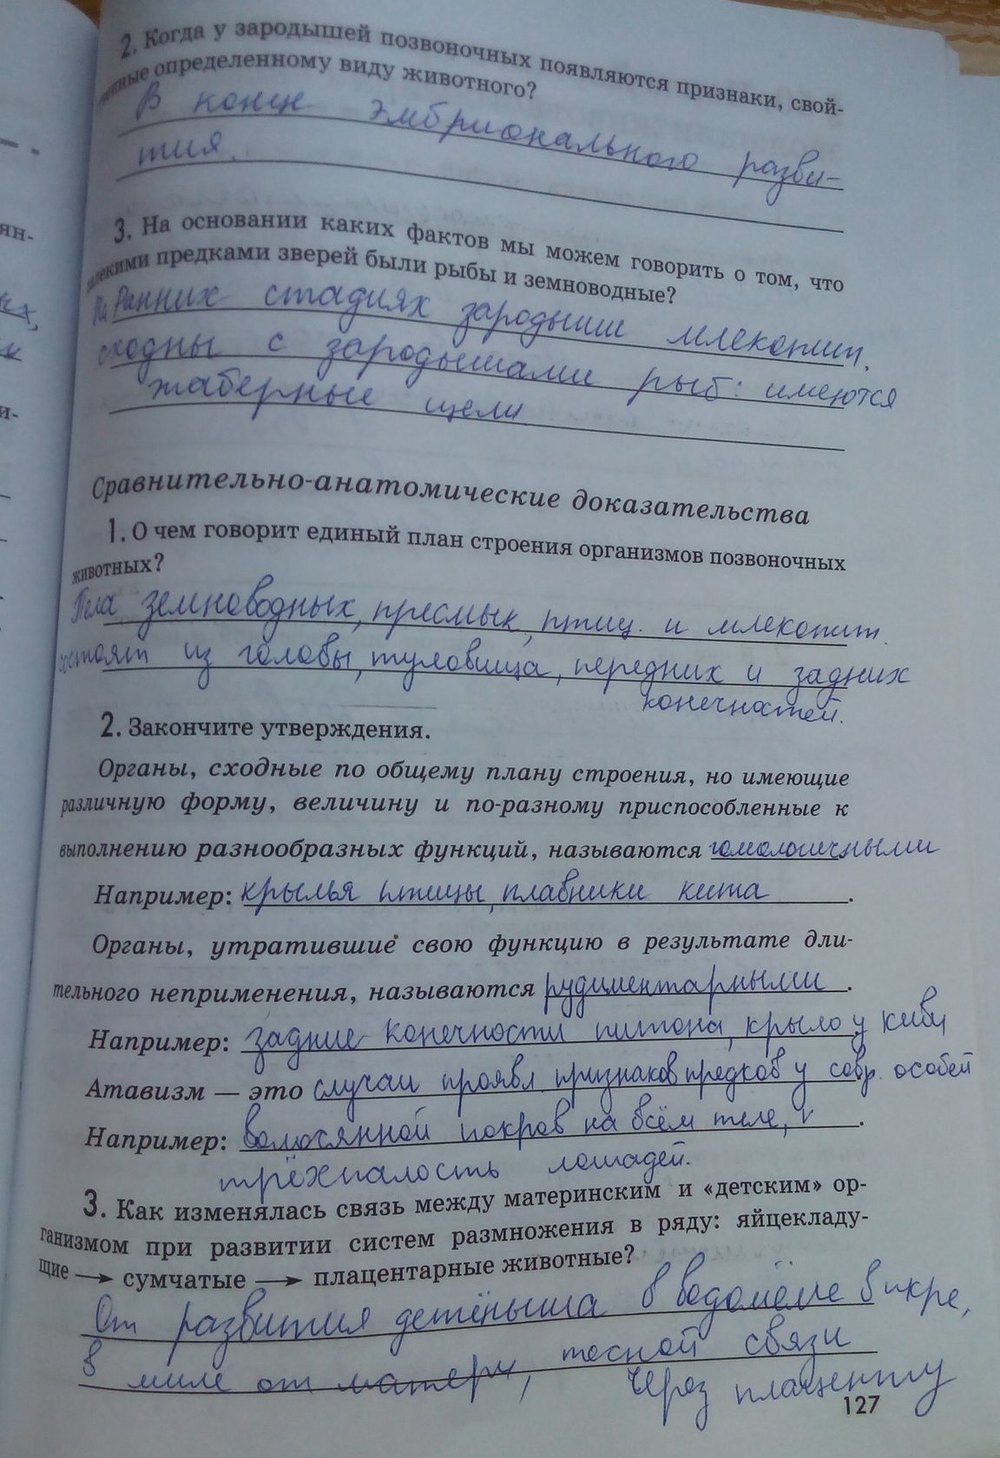 2. Когда у зародышей позвоночных появляются признаки, свой-
определенному виду животного?
В конце эмбрионального разви-
тия.
3. На основании каких фактов мы можем говорить о том, что
предками зверей были рыбы и земноводные?
На Ранних стадиях зародыши млекопит.
сходны с зародышами рыб: имеются
жаберные щели
Сравнительно-анатомические доказательства
1. О чем говорит единый план строения организмов позвоночных
животных?
Тела земноводных, пресмык, птиц. и млекопит.
состоят из головы, туловища, передних и задних
конечностей.
2. Закончите утверждения.
Органы, сходные по общему плану строения, но имеющие
различную форму, величину и по-разному приспособленные к
выполнению разнообразных функций, называются гомологичными
Например: крылья птицы, плавники кита.
Органы, утратившие свою функцию в результате дли-
тельного неприменения, называются рудиментарными.
Например: задние конечности питона, крыло у киви
Атавизм — это случаи проявл признаков предков у совр. особей
Например: волосянной покров на всём теле, и
трёхпалость лошадей.
3. Как изменялась связь между материнским и «детским» ор-
ганизмом при развитии систем размножения в ряду: яйцекладу-
щие → сумчатые → плацентарные животные?
От развития детёныша в водоёме в икре,
в от матери, тесной связи
через плаценту
127